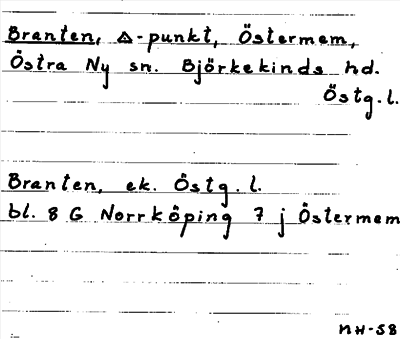 Branten, △-punkt, Östermem,
Östra Ny sn. Björkekinds hd.
Östg.l.
Branten, ek. Östg.l.
bl. 8 G Norrköping 7 j Östermem
NH-58